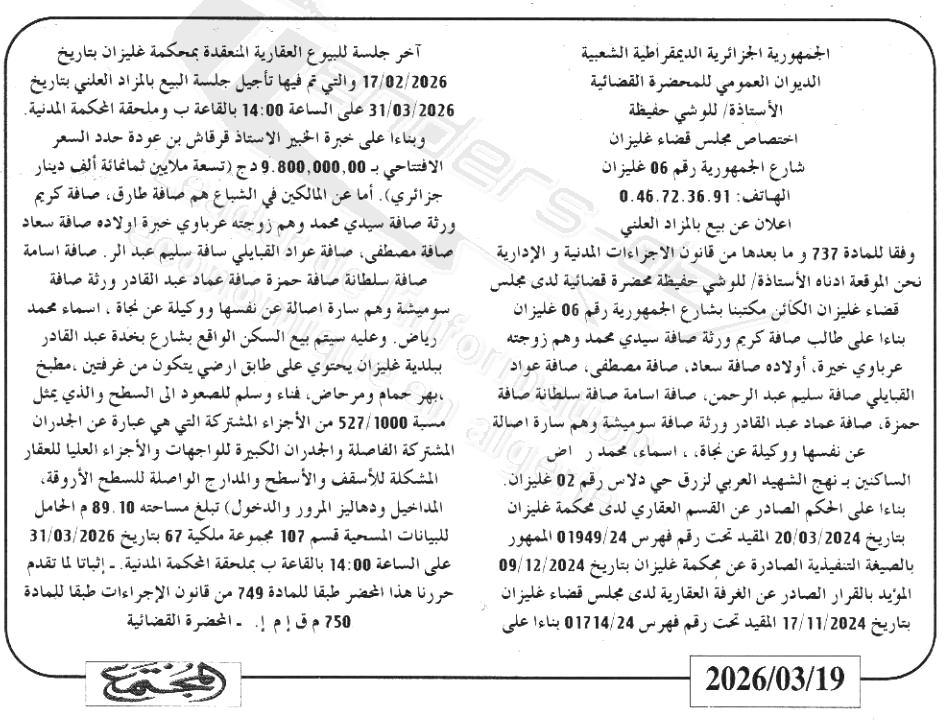 الجمهورية الجزائرية الديمقراطية الشعبية
الديوان العمومي للمحضرة القضائية
الأستاذة/ للوشي حفيظة
اختصاص مجلس قضاء غليزان
شارع الجمهورية رقم 06 غليزان
الهاتف: 0.46.72.36.91
اعلان عن بيع بالمزاد العلني
وفقا للمادة 737 و ما بعدها من قانون الاجراءات المدنية و الإدارية
نحن الموقعة ادناه الأستاذة/ للوشي حفيظة محضرة قضائية لدى مجلس
قضاء غليزان الكائن مكتبنا بشارع الجمهورية رقم 06 غليزان
بناءا على طالب صافة كريم ورثة صافة سيدي محمد وهم زوجته
عرباوي خيرة، أولاده صافة سعاد، صافة مصطفى، صافة عواد
القبايلي صافة سليم عبد الرحمن، صافة اسامة صافة سلطانة صافة
حمزة، صافة عماد عبد القادر ورثة صافة سوميشة وهم سارة اصالة
عن نفسها ووكيلة عن نجاة، ، اسماء، محمد ر اض
الساكنين بـ نهج الشهيد العربي لزرق حي دلاس رقم 02 غليزان.
بناءا على الحكم الصادر عن القسم العقاري لدى محكمة غليزان
بتاريخ 20/03/2024 المقيد تحت رقم فهرس 01949/24 الممهور
بالصيغة التنفيذية الصادرة عن محكمة غليزان بتاريخ 09/12/2024
المؤيد بالقرار الصادر عن الغرفة العقارية لدى مجلس قضاء غليزان
بتاريخ 17/11/2024 المقيد تحت رقم فهرس 01714/24 بناءا على
آخر جلسة للبيوع العقارية المنعقدة بمحكمة غليزان بتاريخ
17/02/2026 والتي تم فيها تأجيل جلسة البيع بالمزاد العلني بتاريخ
31/03/2026 على الساعة 14:00 بالقاعة ب وملحقة المحكمة المدنية.
وبناءا على خبرة الخبير الاستاذ قرقاش بن عودة حدد السعر
الافتتاحي بـ 9.800,000,00 دج (تسعة ملايين ثمانمائة ألف دينار
جزائري). أما عن المالكين في الشباع هم صافة طارق، صافة كريم
ورثة صافة سيدي محمد وهم زوجته عرباوي خيرة اولاده صافة سعاد
صافة مصطفى، صافة عواد القبايلي سافة سليم عبد الر. صافة اسامة
صافة سلطانة صافة حمزة صافة عماد عبد القادر ورثة صافة
سوميشة وهم سارة اصالة عن نفسها ووكيلة عن نجاة ، اسماء محمد
رياض. وعليه سيتم بيع السكن الواقع بشارع بخدة عبد القادر
ببلدية غليزان يحتوي على طابق ارضي يتكون من غرفتين ،مطبخ
،بهر حمام ومرحاض، فناء وسلم للصعود الى السطح والذي يمثل
مسبة 527/1000 من الأجزاء المشتركة التي هي عبارة عن الجدران
المشتركة الفاصلة والجدران الكبيرة للواجهات والأجزاء العليا للعقار
المشكلة للأسقف والأسطح والمدارج الواصلة للسطح الأروقة،
المداخيل ودهاليز المرور والدخول) تبلغ مساحته 89.10 م الحامل
للبيانات المسحية قسم 107 مجموعة ملكية 67 بتاريخ 31/03/2026
على الساعة 14:00 بالقاعة ب بملحقة المحكمة المدنية. ـ إثباتا لما تقدم
حررنا هذا المحضر طبقا للمادة 749 من قانون الإجراءات طبقا للمادة
750 م ق إ م إ. ـ المحضرة القضائية
المجتمع
2026/03/19